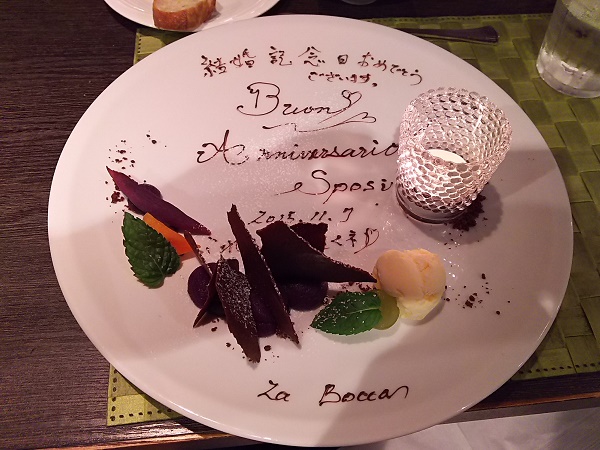 結婚記念日おめでとう
ございます。
Buon
Anniversario
Sposi
2015.11.7
La Bocca